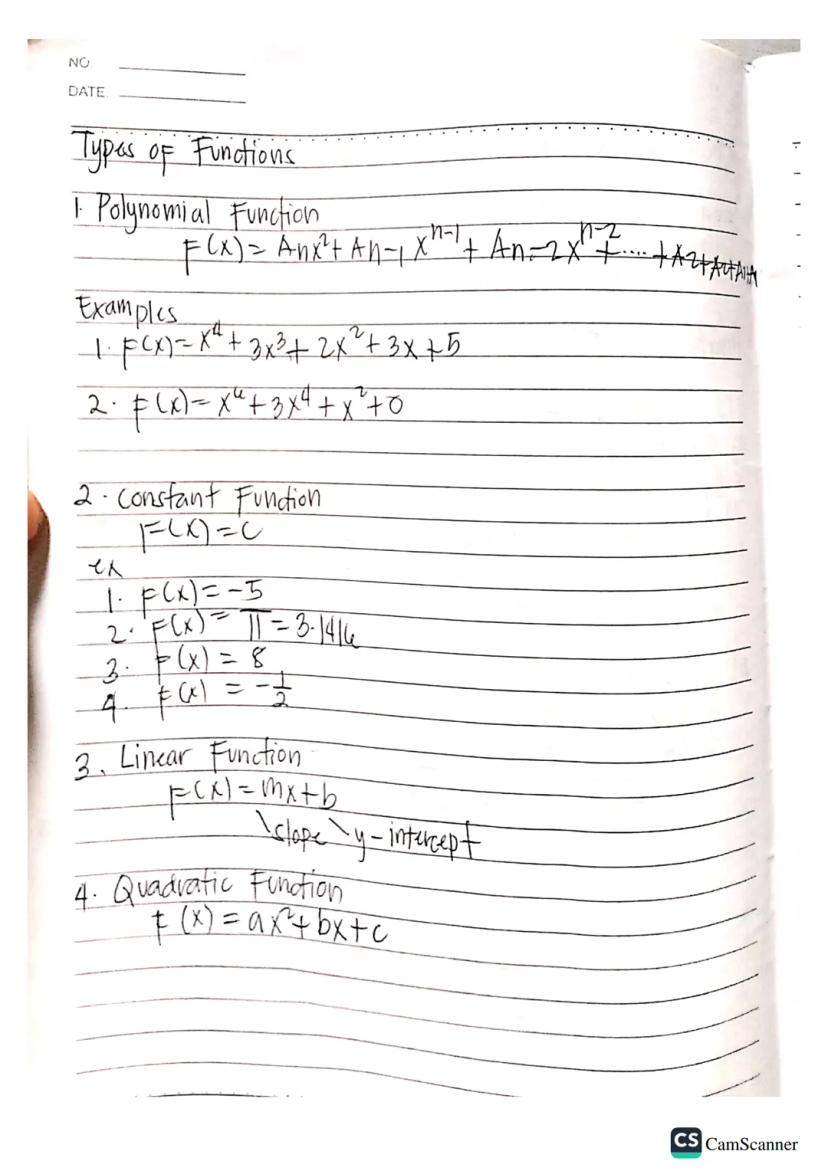 NO.
DATE.
Types of Functions
1. Polynomial Function
F(x) = Anx² + An-1 x^n-1 + An-2x^n-2 + .... + A2+
Examples
1. F(x) = x⁴ + 3x³ + 2x² + 3x + 5
2. F(x) = x⁶ + 3x⁴ + x² + 0
2. Constant Function
F(x) = c
ex
1. F(x) = -5
2. F(x) = π = 3.1416
3. F(x) = 8
4. F(x) = -1/2
3. Linear Function
F(x) = mx+b
\slope \y-intercept
4. Quadratic Function
F(x) = ax²+bx+c
CS CamScanner